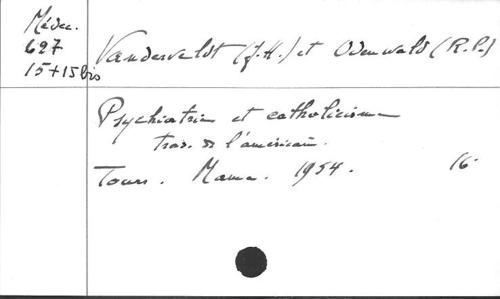 Médec.
697
15+15bis
Vanderveldt (J.H.) et Odenwald (R.P.)
Psychiatrie et catholicisme
trad. de l'américain.
Tours. Mame. 1954. 16°